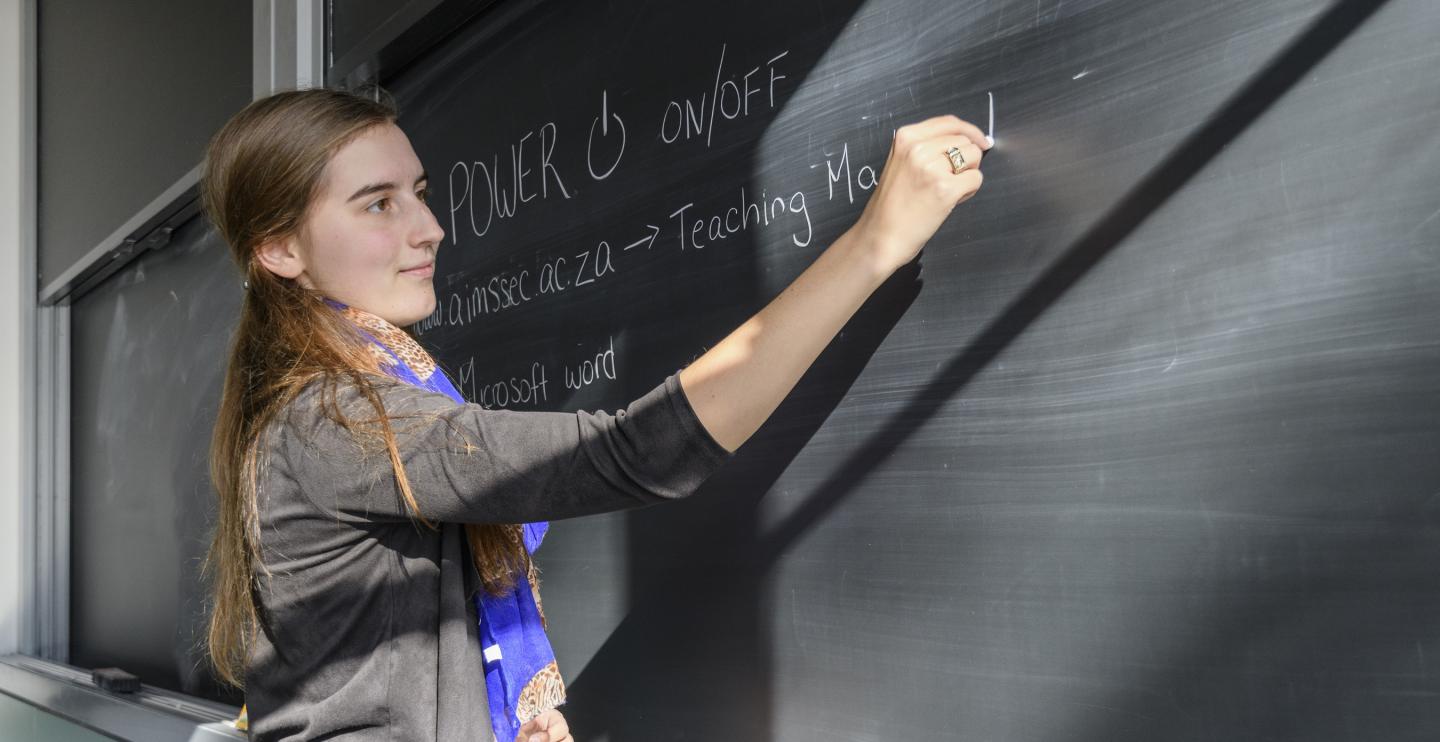 POWER ⏻ ON/OFF
www.aimssec.ac.za → Teaching Ma
Microsoft word